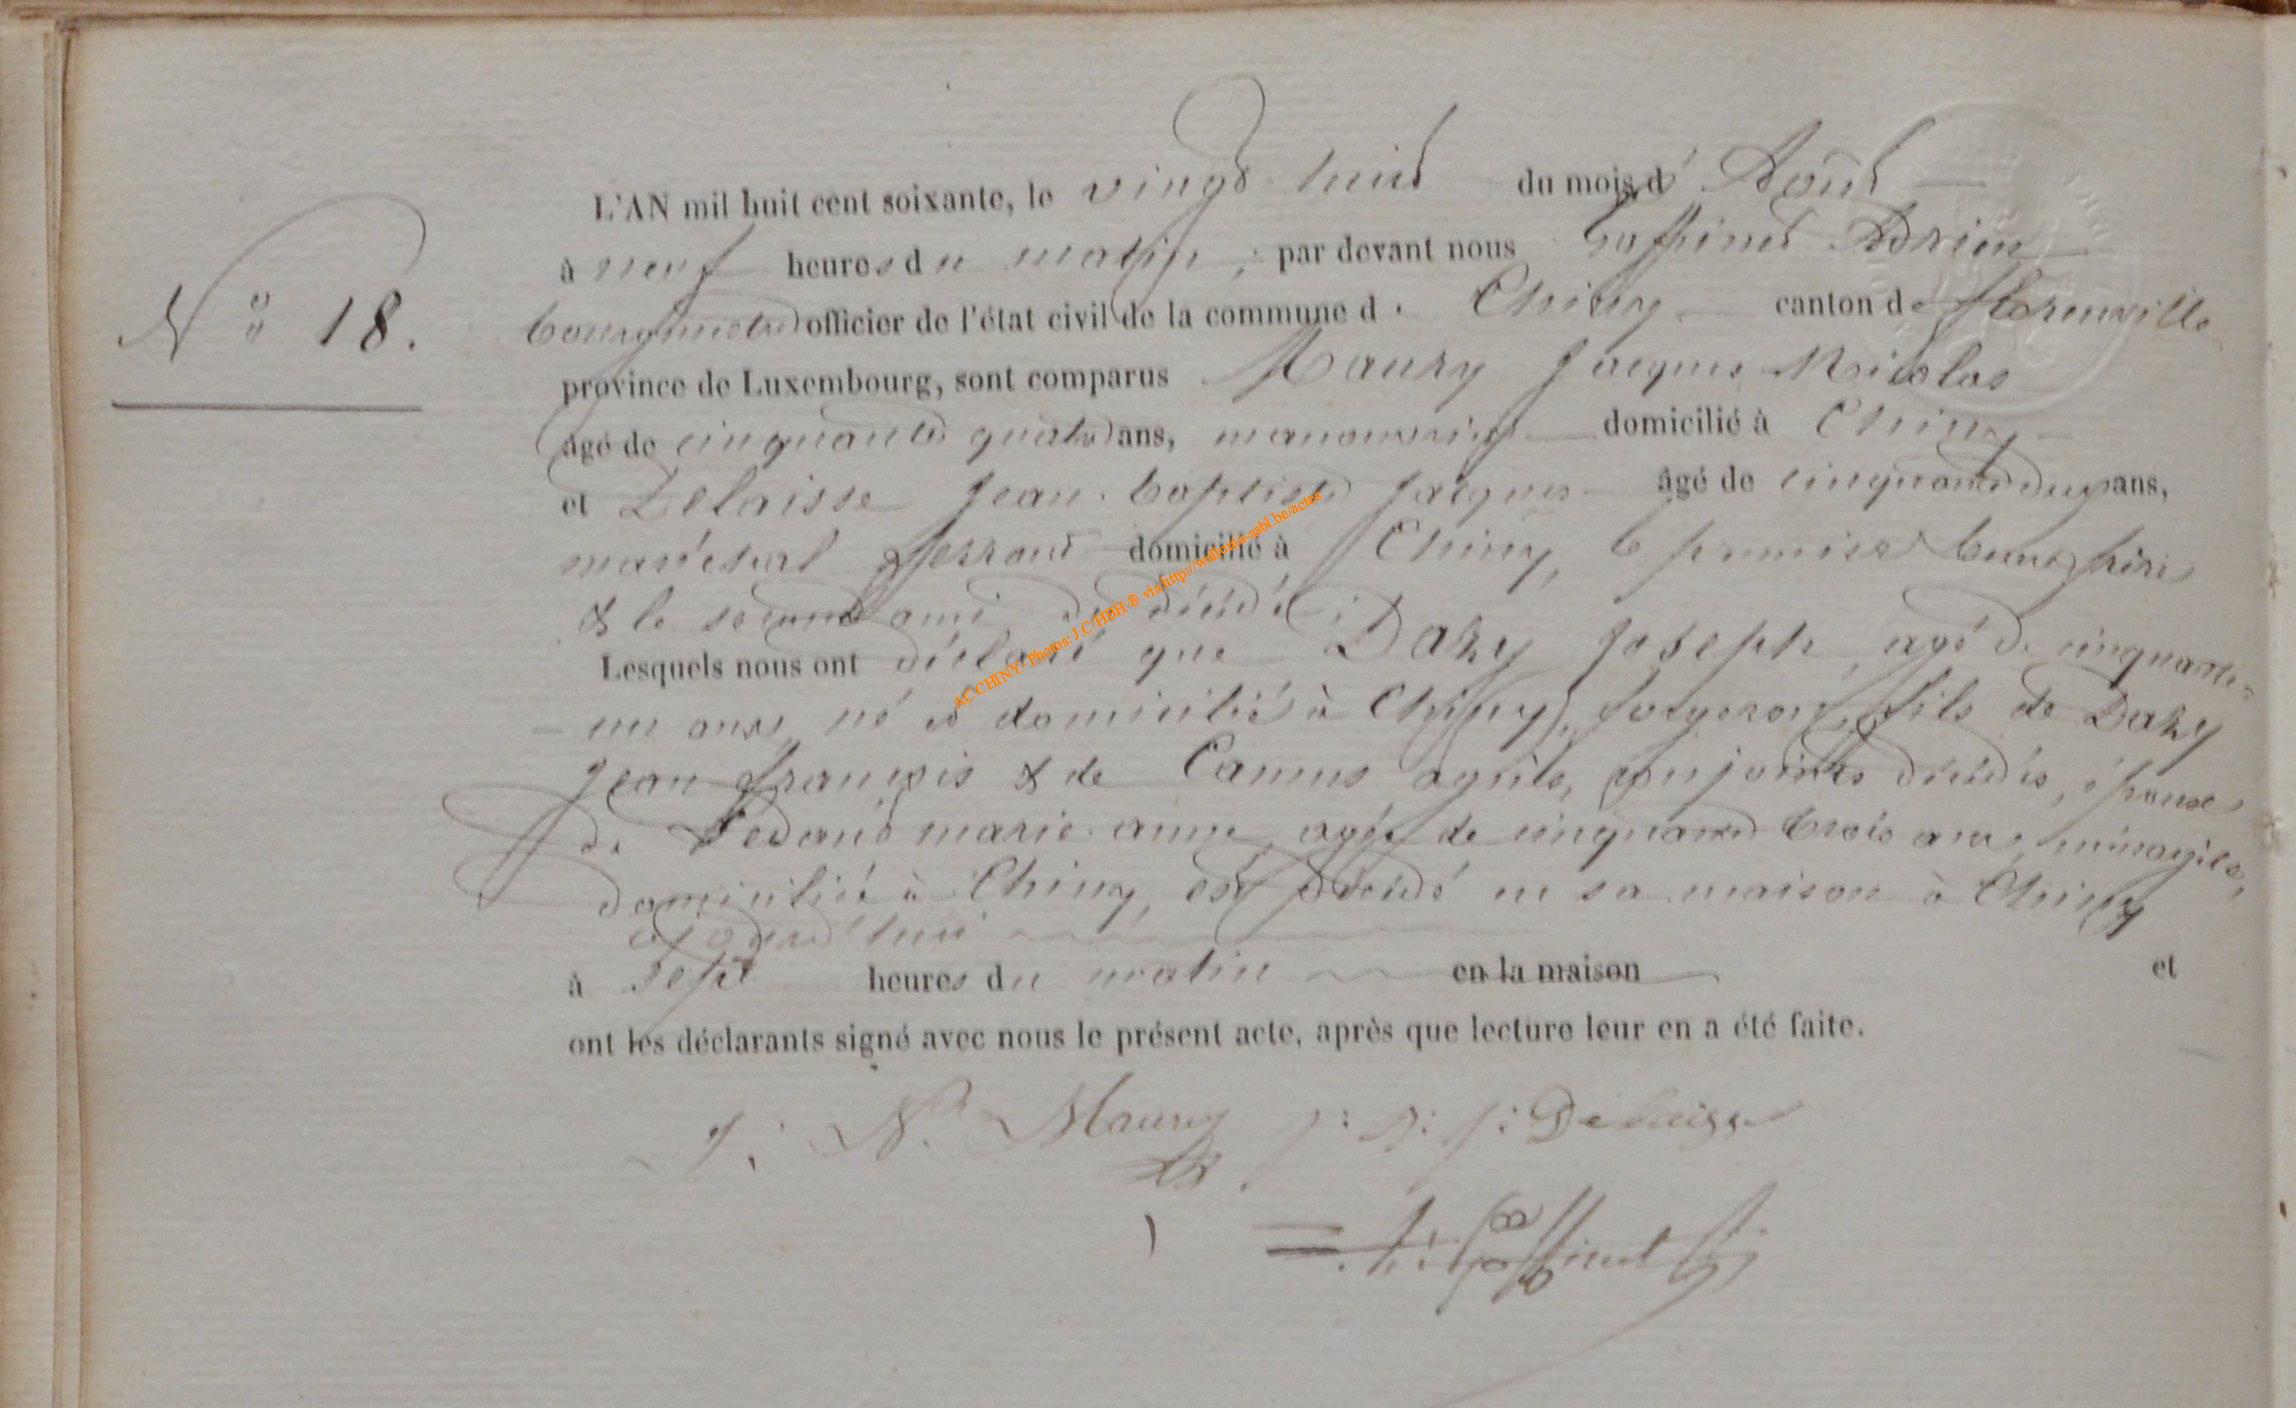 N° 18.
L'AN mil huit cent soixante, le vingt huit du mois d' Août
à neuf heures du matin, par devant nous Goffinet Adrien
bourgmestre officier de l'état civil de la commune de Chiny canton de Florenville
province de Luxembourg, sont comparus Maury Jacques Nicolas
âgé de cinquante quatre ans, manouvrier domicilié à Chiny
et Delaisse Jean-baptiste Jacques âgé de cinquante deux ans,
maréchal ferrant domicilié à Chiny, le premier beau frère
& le second ami du décédé;
Lesquels nous ont déclaré que Dazy Joseph, agé de cinquante-
un ans, né et domicilié à Chiny, forgeron, fils de Dazy
Jean françois & de Camus agnès, conjoints décédés, époux
de marie anne, agée de cinquante trois ans, ménagère,
domiciliée à Chiny, est décédé en sa maison à Chiny
aujourd'hui
à sept heures du matin en la maison et
ont les déclarants signé avec nous le présent acte, après que lecture leur en a été faite.
J: N. Maury J: B: J: Delaisse
Goffinet
AC CHINY - Photos: J.C/HBH ® via http://wallonia-asbl.be/actes